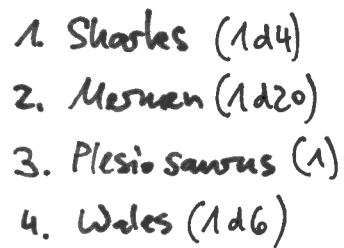 1. Sharks (1d4)
2. Mermen (1d20)
3. Plesiosaurus (1)
4. Wales (1d6)